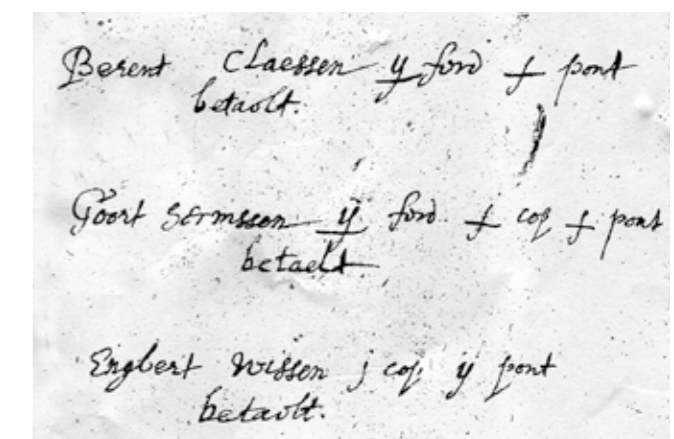 Berent Claessen ij ford j pont
betaolt.
Goort Hermssen ij ford j cop j pont
betaelt
Engbert Wissen j cop ij pont
betaolt.